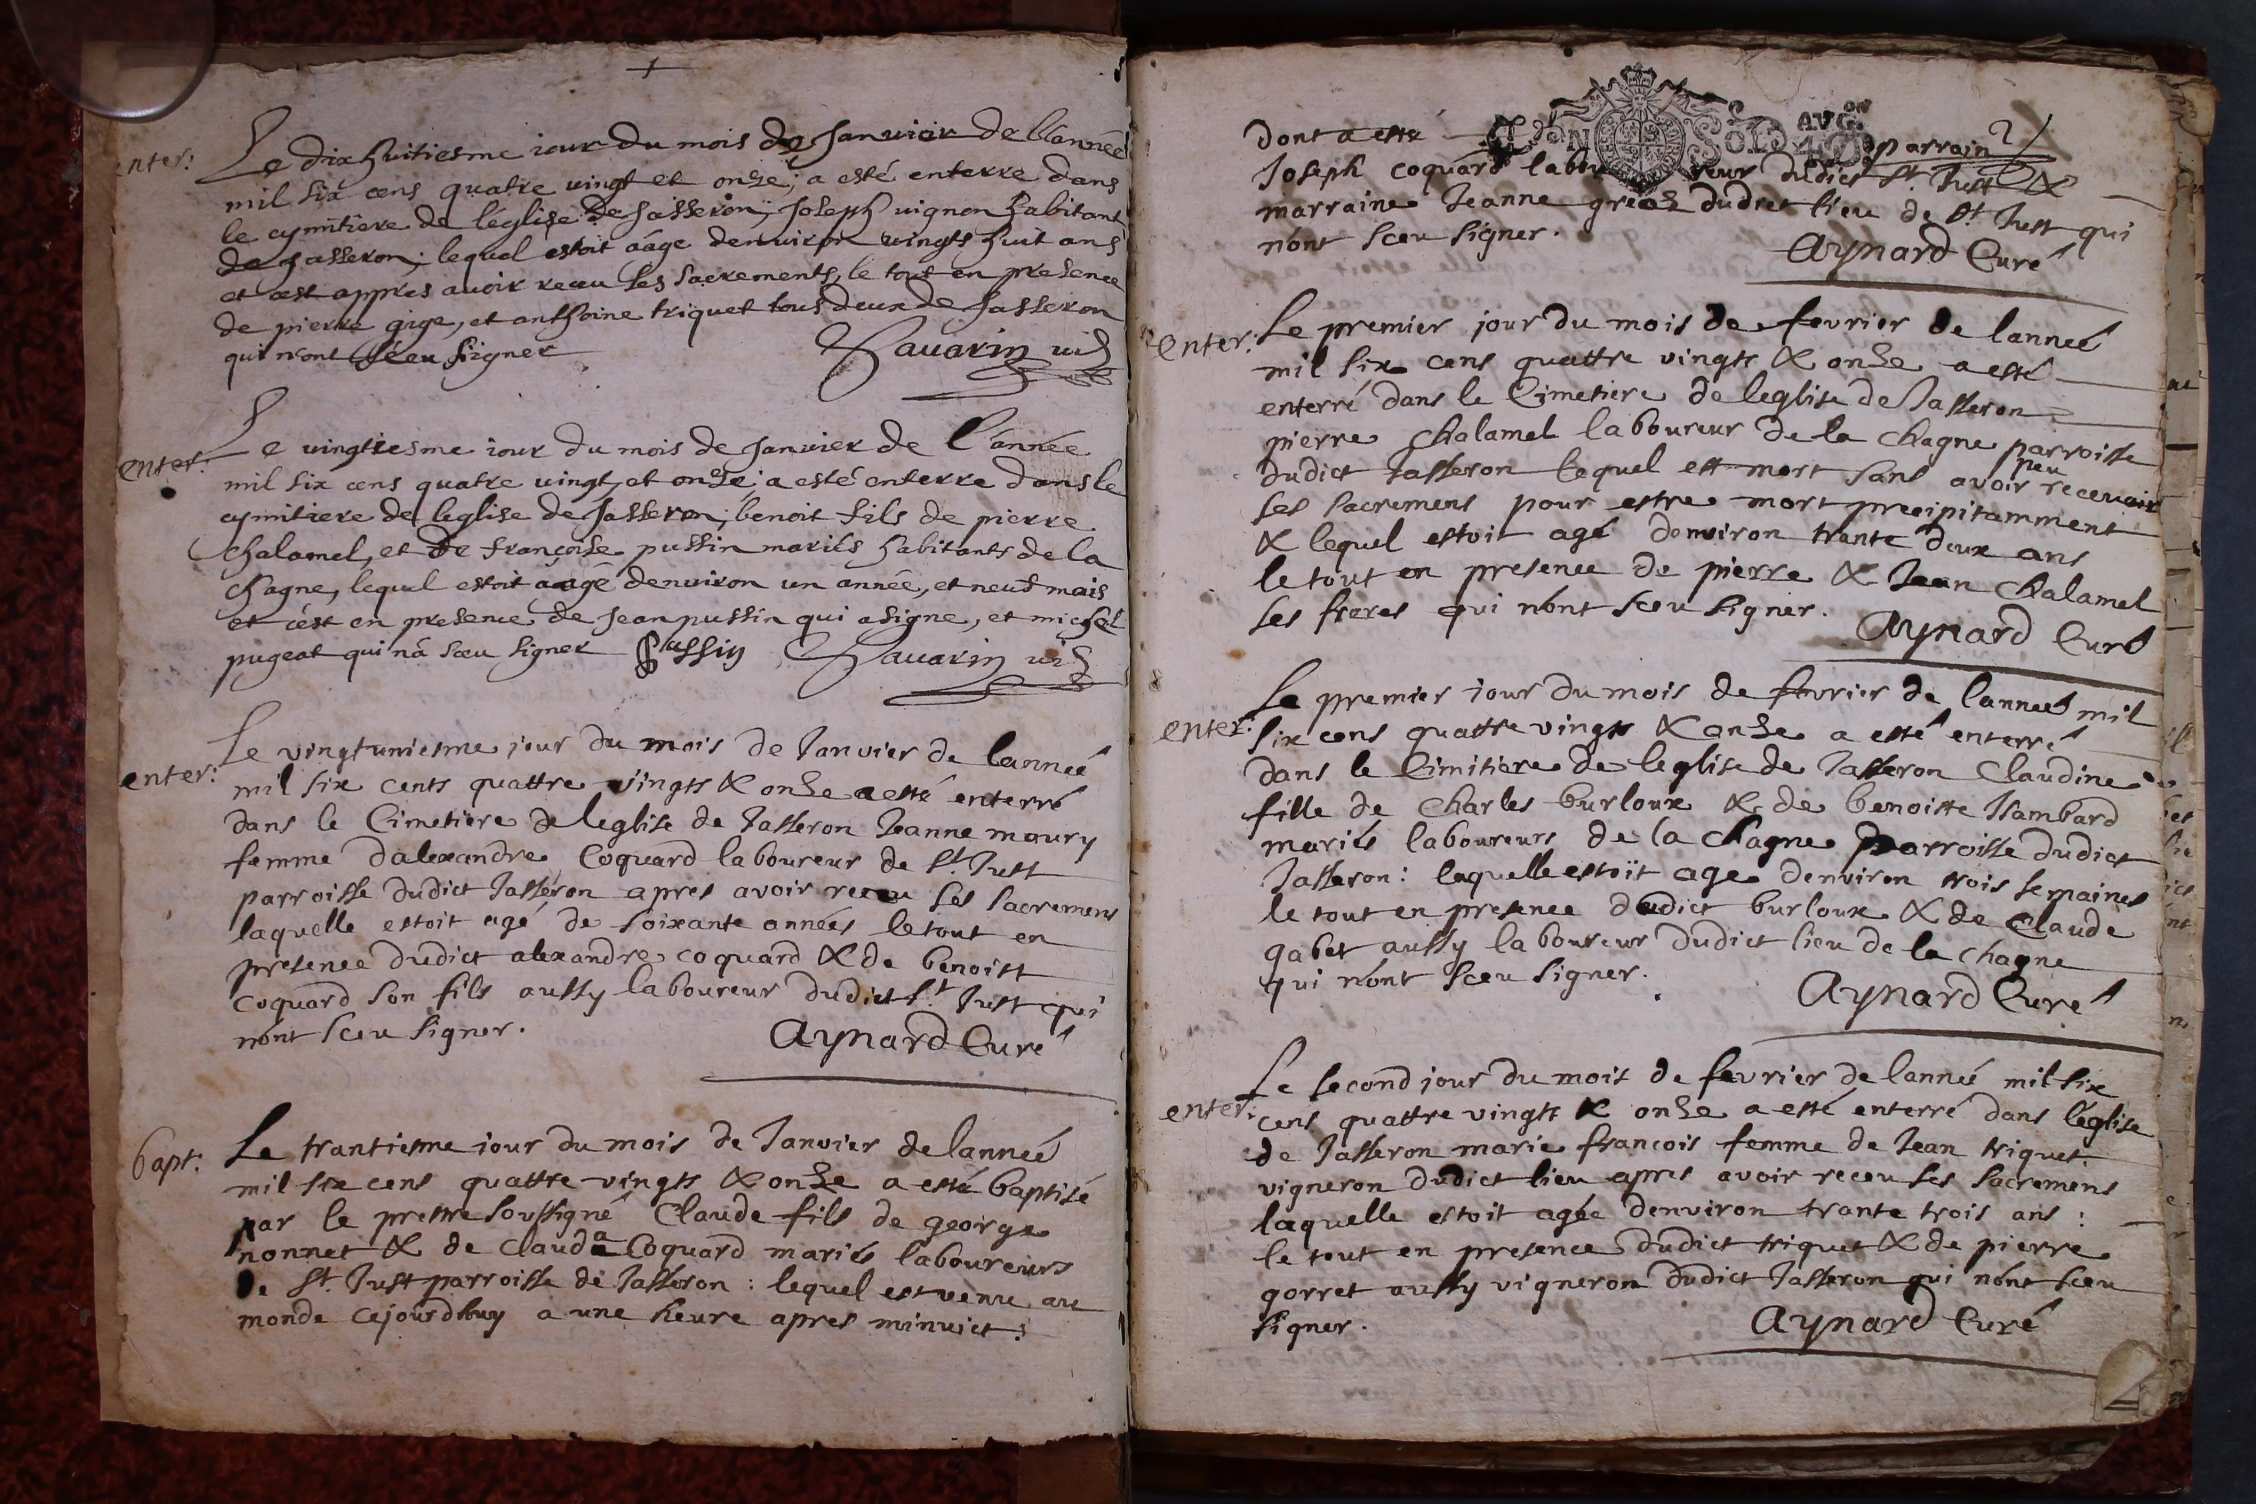 enter:
Le dix huitiesme iour du mois de Janvier de l'année
mil six cens quatre vingt et onze; a esté enterre dans
le cymitiere de léglise de Jasseron; Joseph vignon habitant
de Jasseron; lequel estoit âage denuiron vingts huit ans
et cest appres auoir receu ses sacrements, le tout en presence
de pierre gige, et anthoine triquet tous deux de Jasseron
qui n'ont sceu signer Sauarin vic
enter:
Le vingtiesme iour du mois de Janvier de l'année
mil six cens quatre vingt, et onze; a esté enterre dans le
cymitiere de leglise de Jasseron; benoit fils de pierre
chalamel, et de françoise pussin mariés habitants de la
chagne, lequel estoit âagé denuiron un année, et neuf mais
et cést en presence de Jean pussin qui a signe, et michel
pugeat qui nâ sceu signer Pussin Sauarin vic
enter:
Le vingtuniesme jour du mois de Janvier de lanneé
mil six cents quattre vingts & onze a esté enterré
dans le Cimetiere de leglise de Jasseron Jeanne maury
femme dalexandre Coquard laboureur de St. Just
parroisse dudict Jasseron apres avoir receu ses sacremens
laquelle estoit agé de soixante années le tout en
presence dudict alexandre coquard & de benoist
coquard son fils aussy laboureur dudict St. Just qui
nónt sceu signer. Aynard Curé
bapt:
Le trantiesme iour du mois de Janvier de lanneé
mil six cens quattre vingts & onze a esté baptisé
par le prestre soussigné Claude fils de george
nonnet & de clauda Coquard mariés laboureurs
de St. Just parroisse de Jasseron: lequel est venu au
monde cejourdhuy a une heure apres minuict:
dont a esté parrain
GEN SOLS AVG. 40
Joseph coquard laboureur dudict St. Just &
marraine Jeanne dudict lieu de St. Just qui
nónt sceu signer.
Aynard Curé
enter:
Le premier jour du mois de fevrier de lanneé
mil six cens quattre vingts & onze a esté
enterré dans le Cimetiere de leglise de Jasseron
pierre chalamel laboureur de la chagne parroisse
dudict Jasseron lequel est mort sans avoir peu recevoir
ses sacremens pour estre mort precipitamment
& lequel estoit agé denviron trante deux ans
le tout en presence de pierre & Jean Chalamel
ses freres qui nónt sceu signer. Aynard Curé
enter:
Le premier iour du mois de fevrier de lanneé mil
six cens quattre vingts & onze a esté enterré
dans le Cimitiere de leglise de Jasseron Claudine
fille de Charles burloux & de benoitte Isambard
mariés laboureurs de la chagne parroisse dudict
Jasseron: laquelle estoit age denviron trois semaines
le tout en presence dudict burloux & de Claude
gabet aussy laboureur dudict lieu de la chagne
qui nónt sceu signer.
Aynard Curé
enter:
Le second jour du mois de fevrier de lanneé mil six
cens quattre vingts & onze a esté enterré dans léglise
de Jasseron marie francois femme de Jean triquet
vigneron dudict lieu apres avoir receu ses sacremens
laquelle estoit agée denviron trante trois ans:
le tout en presence dudict triquet & de pierre
gorret aussy vigneron dudict Jasseron qui nónt sceu
signer.
Aynard Curé